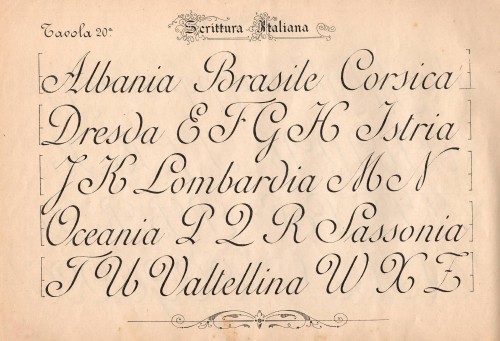 Tavola 20.a
Scrittura Italiana
Albania Brasile Corsica
Dresda E F G H Istria
J K Lombardia M N
Oceania P Q R Sassonia
T U Valtellina W X Z